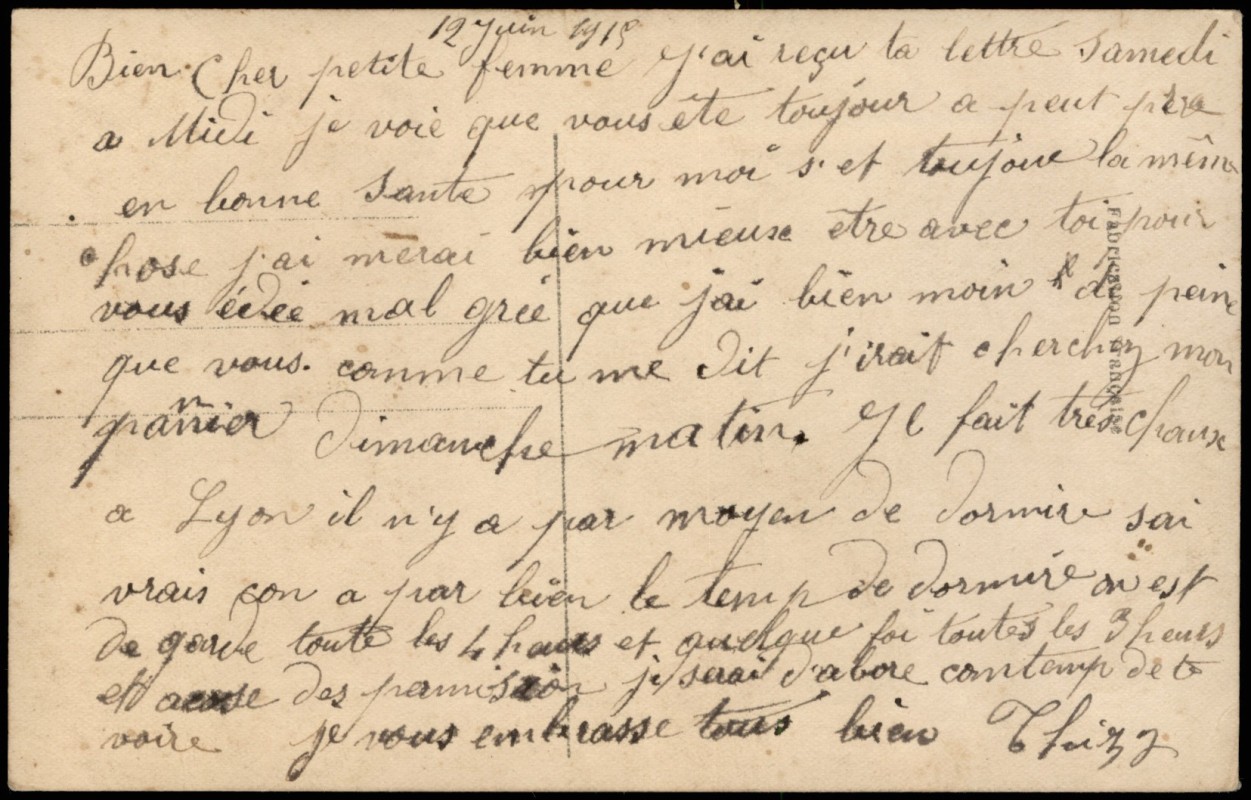 12 Juin 1915
Bien Cher petite femme J'ai reçu ta lettre Samedi
a Midi je voie que vous ête toujour a peut près
en bonne Sante pour moi s'et toujour la même
chose j'ai merai bien mieux etre avec toi pour
vous édée mal grée que j'ai bien moin de peine
que vous. comme tu me dit j'irait cherchez mon
pannier Dimanche matin. Il fait très chaux
a Lyon il n'y a par moyen de dormire sai
vrais con a par bien le temp de dormire on est
de garde toute les 4 heurs et quelque foi toutes les 3 heurs
et acose des permission je serai d'abore contemp de te
voire je vous embrasse tous bien
Fabrication Française